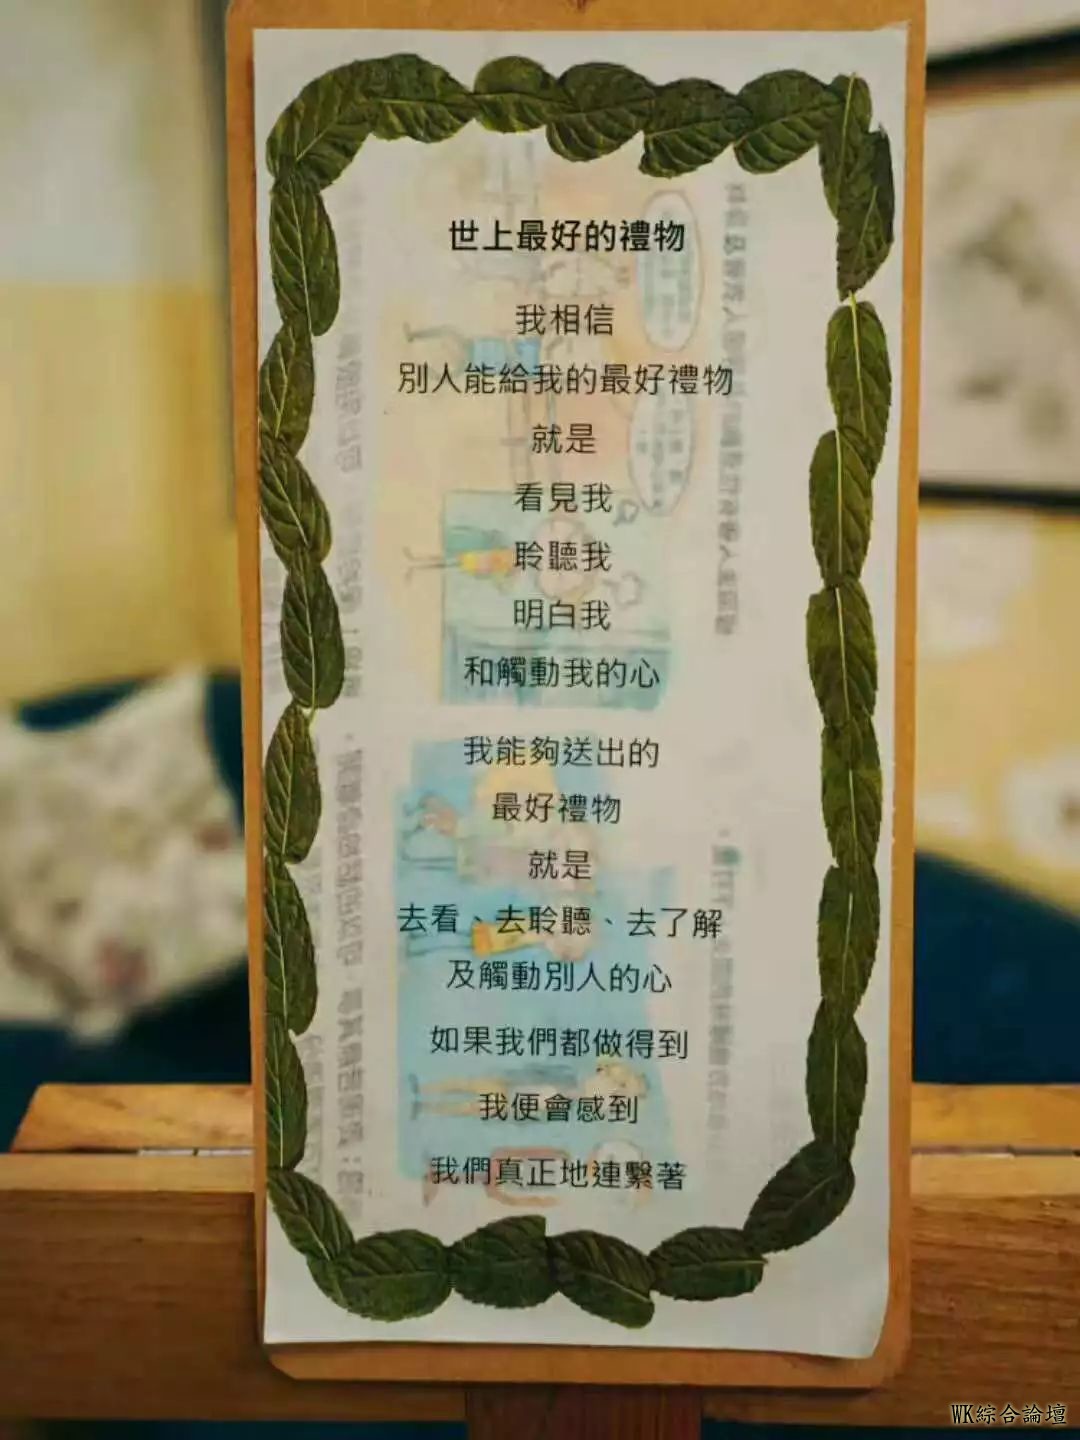 世上最好的禮物
我相信
別人能給我的最好禮物
就是
看見我
聆聽我
明白我
和觸動我的心
我能夠送出的
最好禮物
就是
去看、去聆聽、去了解
及觸動別人的心
如果我們都做得到
我便會感到
我們真正地連繫著
WK綜合論壇